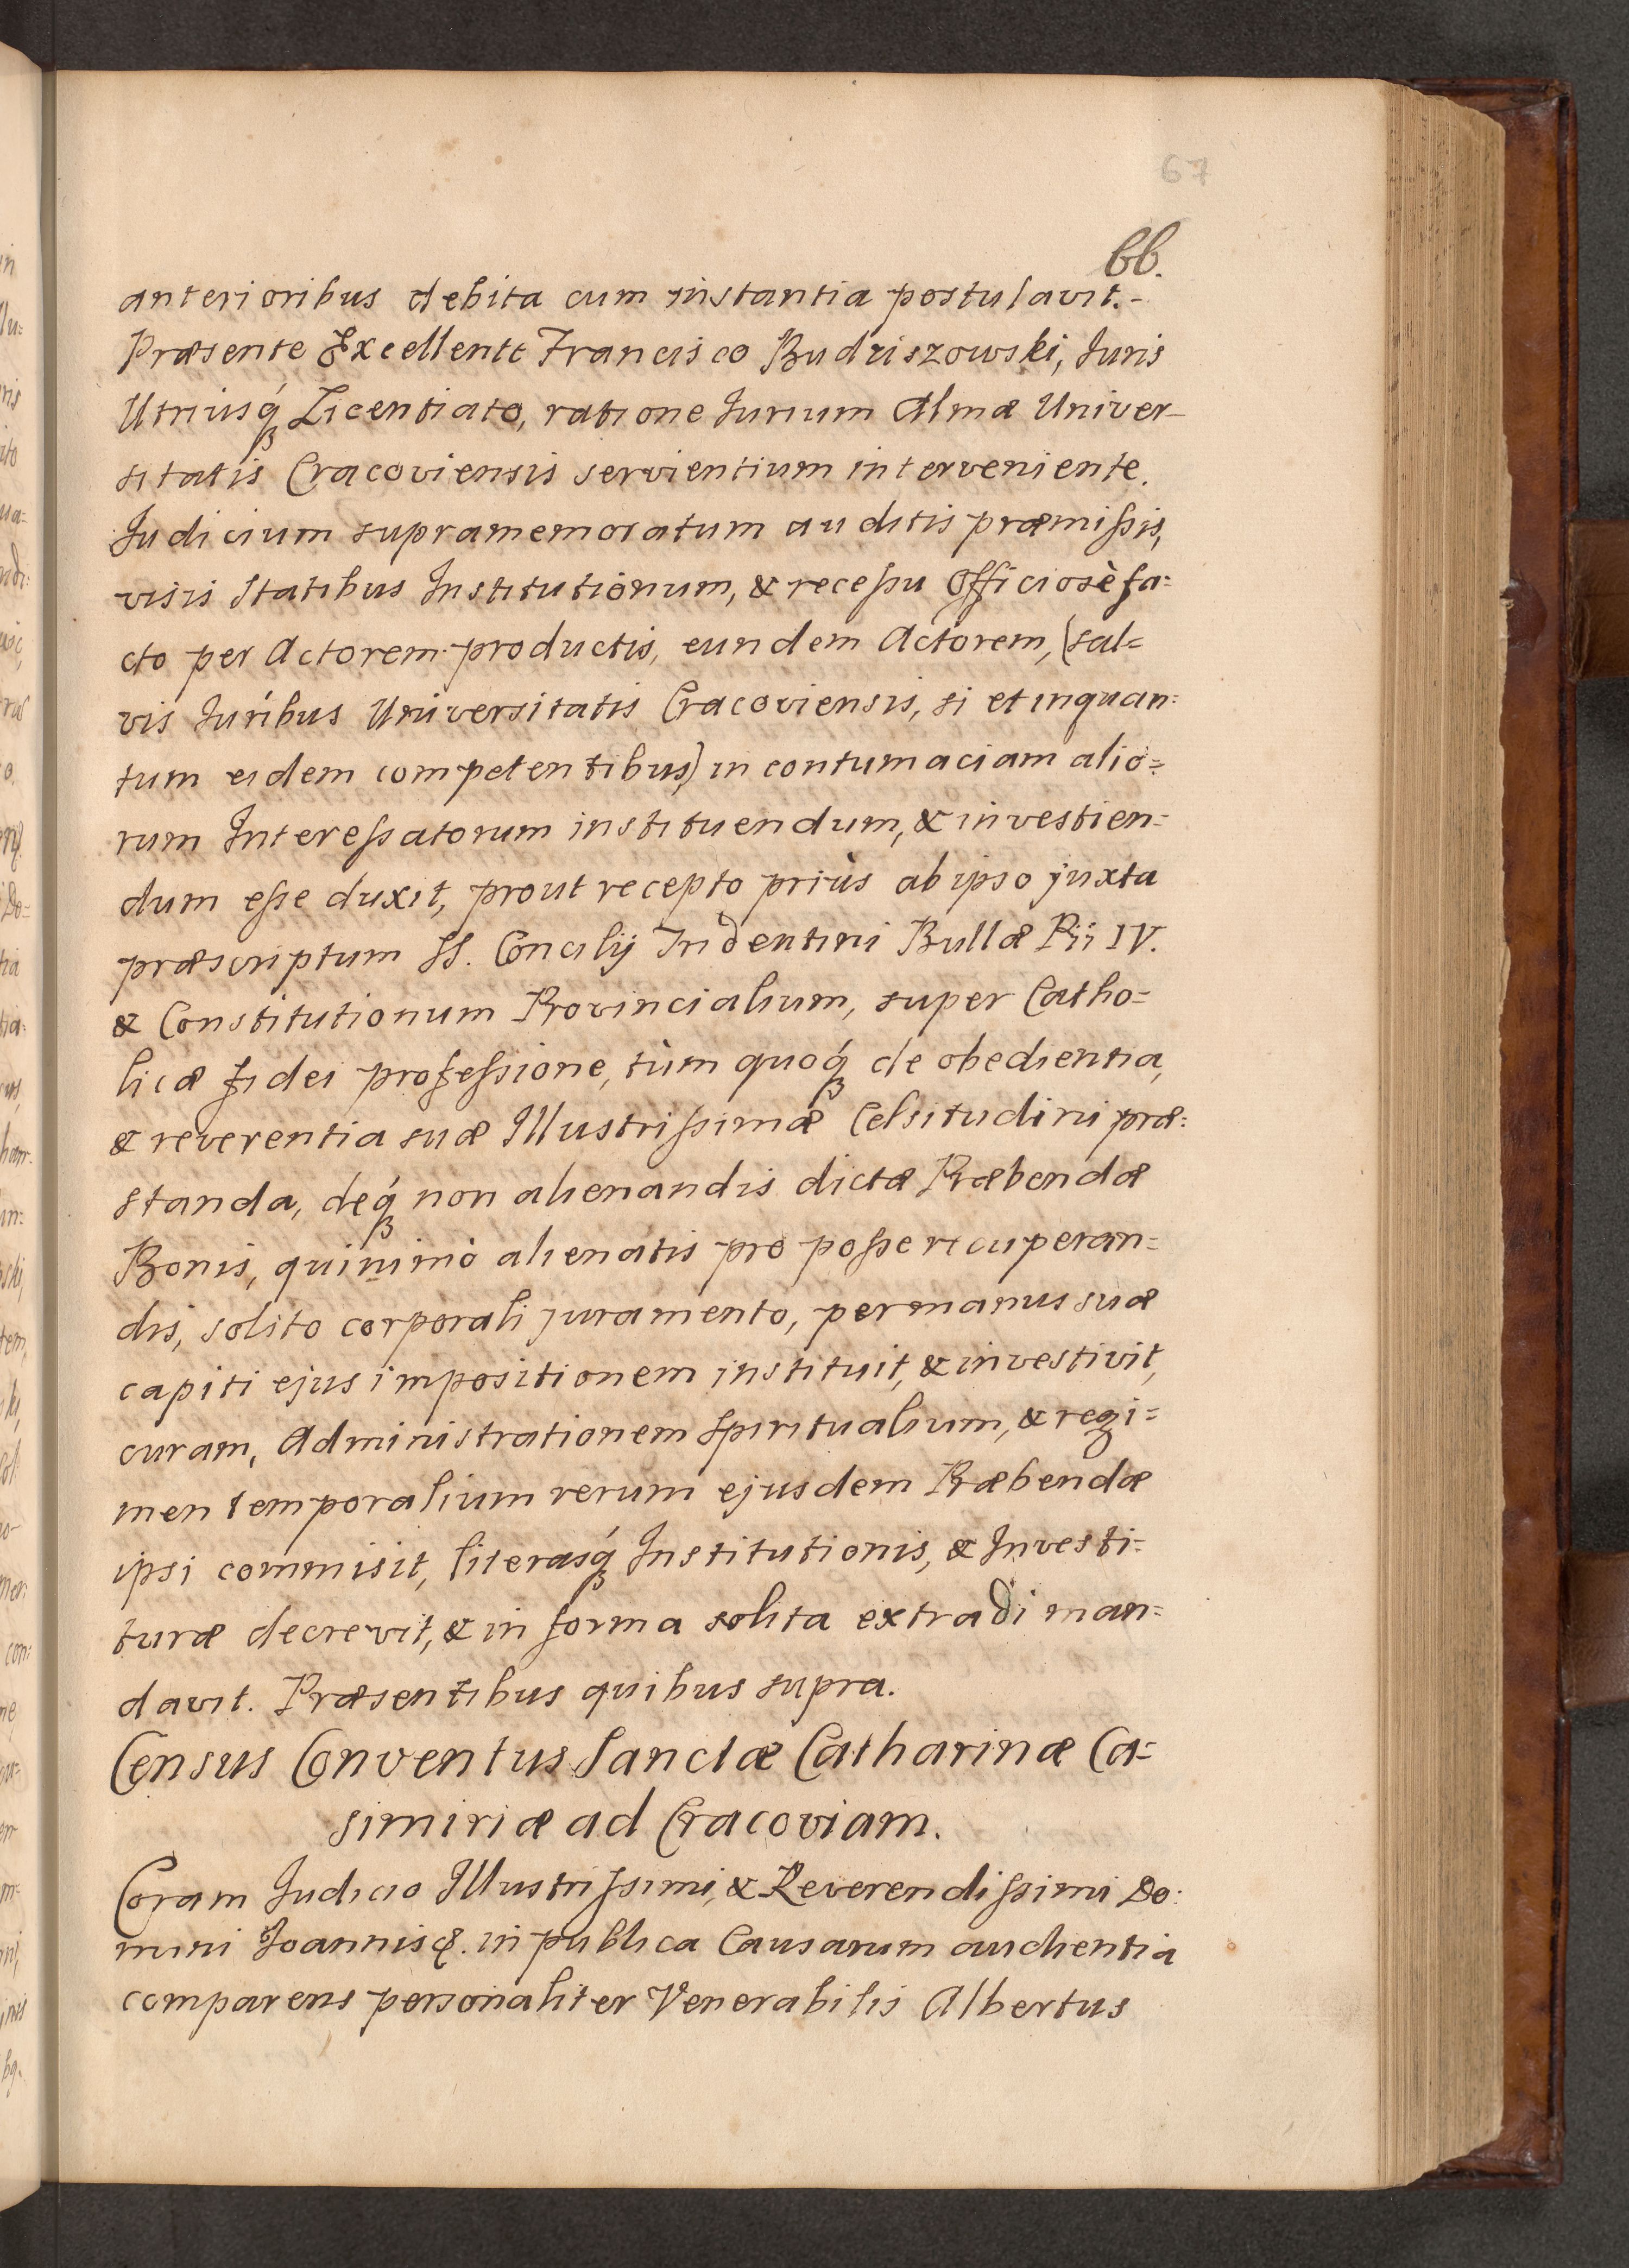 67
66.
anterioribus debita cum instantia postulavit.-
Præsente Excellente Francisco Budziszowski, Juris
Utriusq́ꝫ Licentiato, ratione Jurium Almæ Univer-
sitatis Cracoviensis servientium interveniente.
Judicium supramemoratum auditis præmiſsis,
visis Statibus Institutionum, & receſsu Officiosè fa=
cto per Actorem productis, eundem Actorem, (sal=
vis Juribus Universitatis Cracoviensis, si et inquan=
tum eidem competentibus) in contumaciam alio=
rum Intereſsatorum instituendum, & investien=
dum eſse duxit, prout recepto priùs ab ipso juxta
præscriptum SS. Concilij Tridentini Bullæ Pii IV.
& Constitutionum Provincialium, super Catho=
licæ fidei profeſsione, tùm quoq́ꝫ de obedientia,
& reverentia suæ Illustriſsimæ Celsitudini præ=
standa, deq́ꝫ non alienandis dictæ Præbendæ
Bonis, quinimò alienatis pro poſse recuperan=
dis, solito corporali juramento, per manus suæ
capiti ejus impositionem instituit, & investivit,
curam, Administrationem Spiritualium, & regi=
men temporalium rerum ejusdem Præbendæ
ipsi commisit, literasq́ꝫ Institutionis, & Investi=
turæ decrevit, & in forma solita extradi man=
davit. Præsentibus quibus supra.
Census Conventus Sanctæ Catharinæ Ca=
simiriæ ad Cracoviam.
Coram Judicio Illustriſsimi, & Reverendiſsimi Do=
mini Joannis &. in publica Causarum audientia
comparens personaliter Venerabilis Albertus